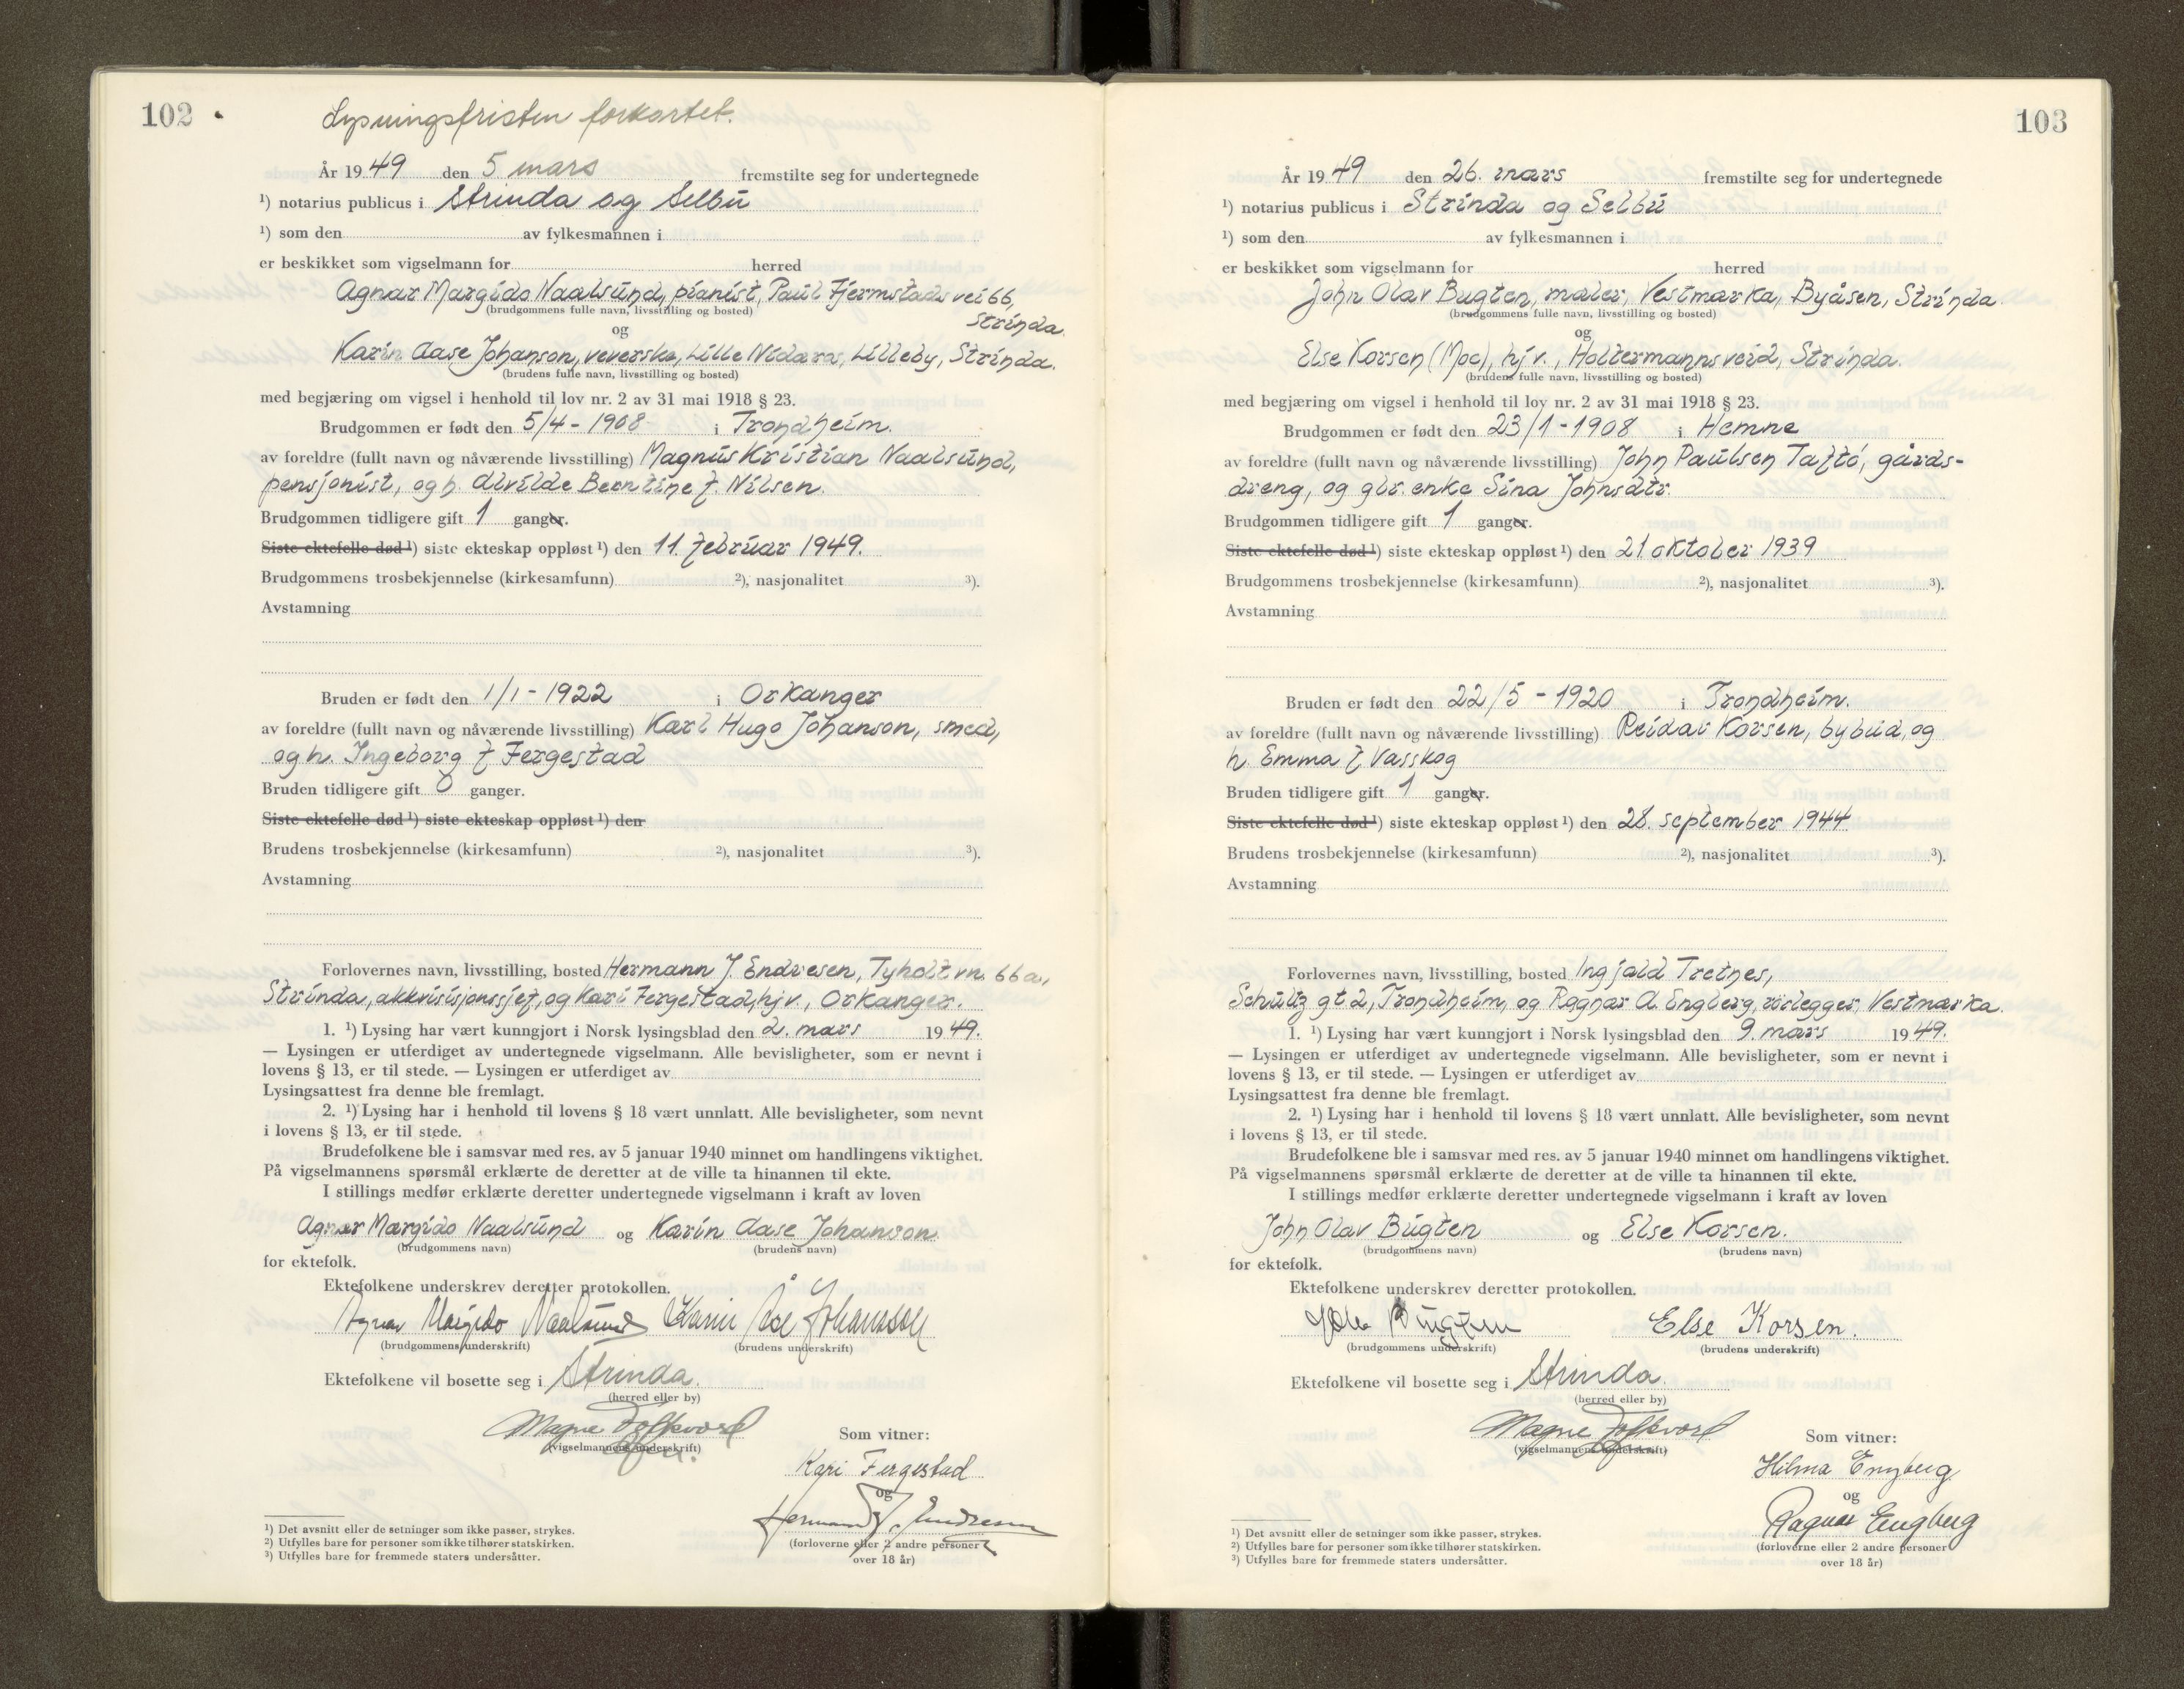 102
Lysningsfristen forkortet.
År 1949 den 5 mars fremstilte seg for undertegnede
¹) notarius publicus i Strinda og Selbu
¹) som den av fylkesmannen i
er beskikket som vigselmann for herred
Agnar Margido Naalsund, pianist, Paul Fjermstads vei 66,
(brudgommens fulle navn, livsstilling og bosted)
Strinda
og
Karin Aase Johanson, veverske, Lille Nidarø, Lilleby, Strinda.
(brudens fulle navn, livsstilling og bosted)
med begjæring om vigsel i henhold til lov nr. 2 av 31 mai 1918 § 23.
Brudgommen er født den 5/4 - 1908 i Trondheim.
av foreldre (fullt navn og nåværende livsstilling) Magnus Kristian Naalsund,
pensjonist, og h. Alvilde Berntine f. Nilsen.
Brudgommen tidligere gift 1 ganger.
Siste ektefelle død ¹) siste ekteskap oppløst ¹) den 11. februar 1949.
Brudgommens trosbekjennelse (kirkesamfunn) ²), nasjonalitet ³).
Avstamning
Bruden er født den 1/1 - 1922 i Orkanger
av foreldre (fullt navn og nåværende livsstilling) Karl Hugo Johanson, smed,
og h. Ingeborg f Fergestad
Bruden tidligere gift 0 ganger.
Siste ektefelle død ¹) siste ekteskap oppløst ¹) den
Brudens trosbekjennelse (kirkesamfunn) ²), nasjonalitet ³).
Avstamning
Forlovernes navn, livsstilling, bosted Hermann J. Endresen, Tyholt vn. 66a,
Strinda, akkvisisjonssjef, og Kari Fergestad, hjv., Orkanger.
1. ¹) Lysing har vært kunngjort i Norsk lysingsblad den 2. mars 1949.
— Lysingen er utferdiget av undertegnede vigselmann. Alle bevisligheter, som er nevnt i
lovens § 13, er til stede. — Lysingen er utferdiget av
Lysingsattest fra denne ble fremlagt.
2. ¹) Lysing har i henhold til lovens § 18 vært unnlatt. Alle bevisligheter, som nevnt
i lovens § 13, er til stede.
Brudefolkene ble i samsvar med res. av 5 januar 1940 minnet om handlingens viktighet.
På vigselmannens spørsmål erklærte de deretter at de ville ta hinannen til ekte.
I stillings medfør erklærte deretter undertegnede vigselmann i kraft av loven
Agnar Margido Naalsund og Karin Aase Johanson
(brudgommens navn) (brudens navn)
for ektefolk.
Ektefolkene underskrev deretter protokollen.
Agnar Margido Naalsund Karin Åse Johansson
(brudgommens underskrift) (brudens underskrift)
Ektefolkene vil bosette seg i Strinda.
(herred eller by)
Magne Folkvord
(vigselmannens underskrift)
Som vitner:
Kari Fergestad
og
Hermann J. Endresen
(forloverne eller 2 andre personer
over 18 år)
¹) Det avsnitt eller de setninger som ikke passer, strykes.
²) Utfylles bare for personer som ikke tilhører statskirken.
³) Utfylles bare for fremmede staters undersåtter.
103
År 1949 den 26. mars fremstilte seg for undertegnede
¹) notarius publicus i Strinda og Selbu
¹) som den av fylkesmannen i
er beskikket som vigselmann for herred
John Olav Bugten, maler, Vestmarka, Byåsen, Strinda
(brudgommens fulle navn, livsstilling og bosted)
og
Else Korsen (Moe), hjv., Holtermannsvei 2, Strinda.
(brudens fulle navn, livsstilling og bosted)
med begjæring om vigsel i henhold til lov nr. 2 av 31 mai 1918 § 23.
Brudgommen er født den 23/1 - 1908 i Hemne
av foreldre (fullt navn og nåværende livsstilling) John Paulsen Taftø, gårds-
dreng, og gbr. enke Sina Johnsdtr.
Brudgommen tidligere gift 1 ganger.
Siste ektefelle død ¹) siste ekteskap oppløst ¹) den 21 oktober 1939
Brudgommens trosbekjennelse (kirkesamfunn) ²), nasjonalitet ³).
Avstamning
Bruden er født den 22/5 - 1920 i Trondheim.
av foreldre (fullt navn og nåværende livsstilling) Reidar Korsen, bybud, og
h. Emma f Vasskog
Bruden tidligere gift 1 ganger.
Siste ektefelle død ¹) siste ekteskap oppløst ¹) den 28. september 1944
Brudens trosbekjennelse (kirkesamfunn) ²), nasjonalitet ³).
Avstamning
Forlovernes navn, livsstilling, bosted Ingjald Tretnes,
Schultz gt 2, Trondheim, og Ragnar A. Engberg, rørlegger, Vestmarka.
1. ¹) Lysing har vært kunngjort i Norsk lysingsblad den 9. mars 1949.
— Lysingen er utferdiget av undertegnede vigselmann. Alle bevisligheter, som er nevnt i
lovens § 13, er til stede. — Lysingen er utferdiget av
Lysingsattest fra denne ble fremlagt.
2. ¹) Lysing har i henhold til lovens § 18 vært unnlatt. Alle bevisligheter, som nevnt
i lovens § 13, er til stede.
Brudefolkene ble i samsvar med res. av 5 januar 1940 minnet om handlingens viktighet.
På vigselmannens spørsmål erklærte de deretter at de ville ta hinannen til ekte.
I stillings medfør erklærte deretter undertegnede vigselmann i kraft av loven
John Olav Bugten og Else Korsen.
(brudgommens navn) (brudens navn)
for ektefolk.
Ektefolkene underskrev deretter protokollen.
John Bugten Else Korsen.
(brudgommens underskrift) (brudens underskrift)
Ektefolkene vil bosette seg i Strinda.
(herred eller by)
Magne Folkvord
(vigselmannens underskrift)
Som vitner:
Hilma Engberg
og
Ragnar Engberg
(forloverne eller 2 andre personer
over 18 år)
¹) Det avsnitt eller de setninger som ikke passer, strykes.
²) Utfylles bare for personer som ikke tilhører statskirken.
³) Utfylles bare for fremmede staters undersåtter.